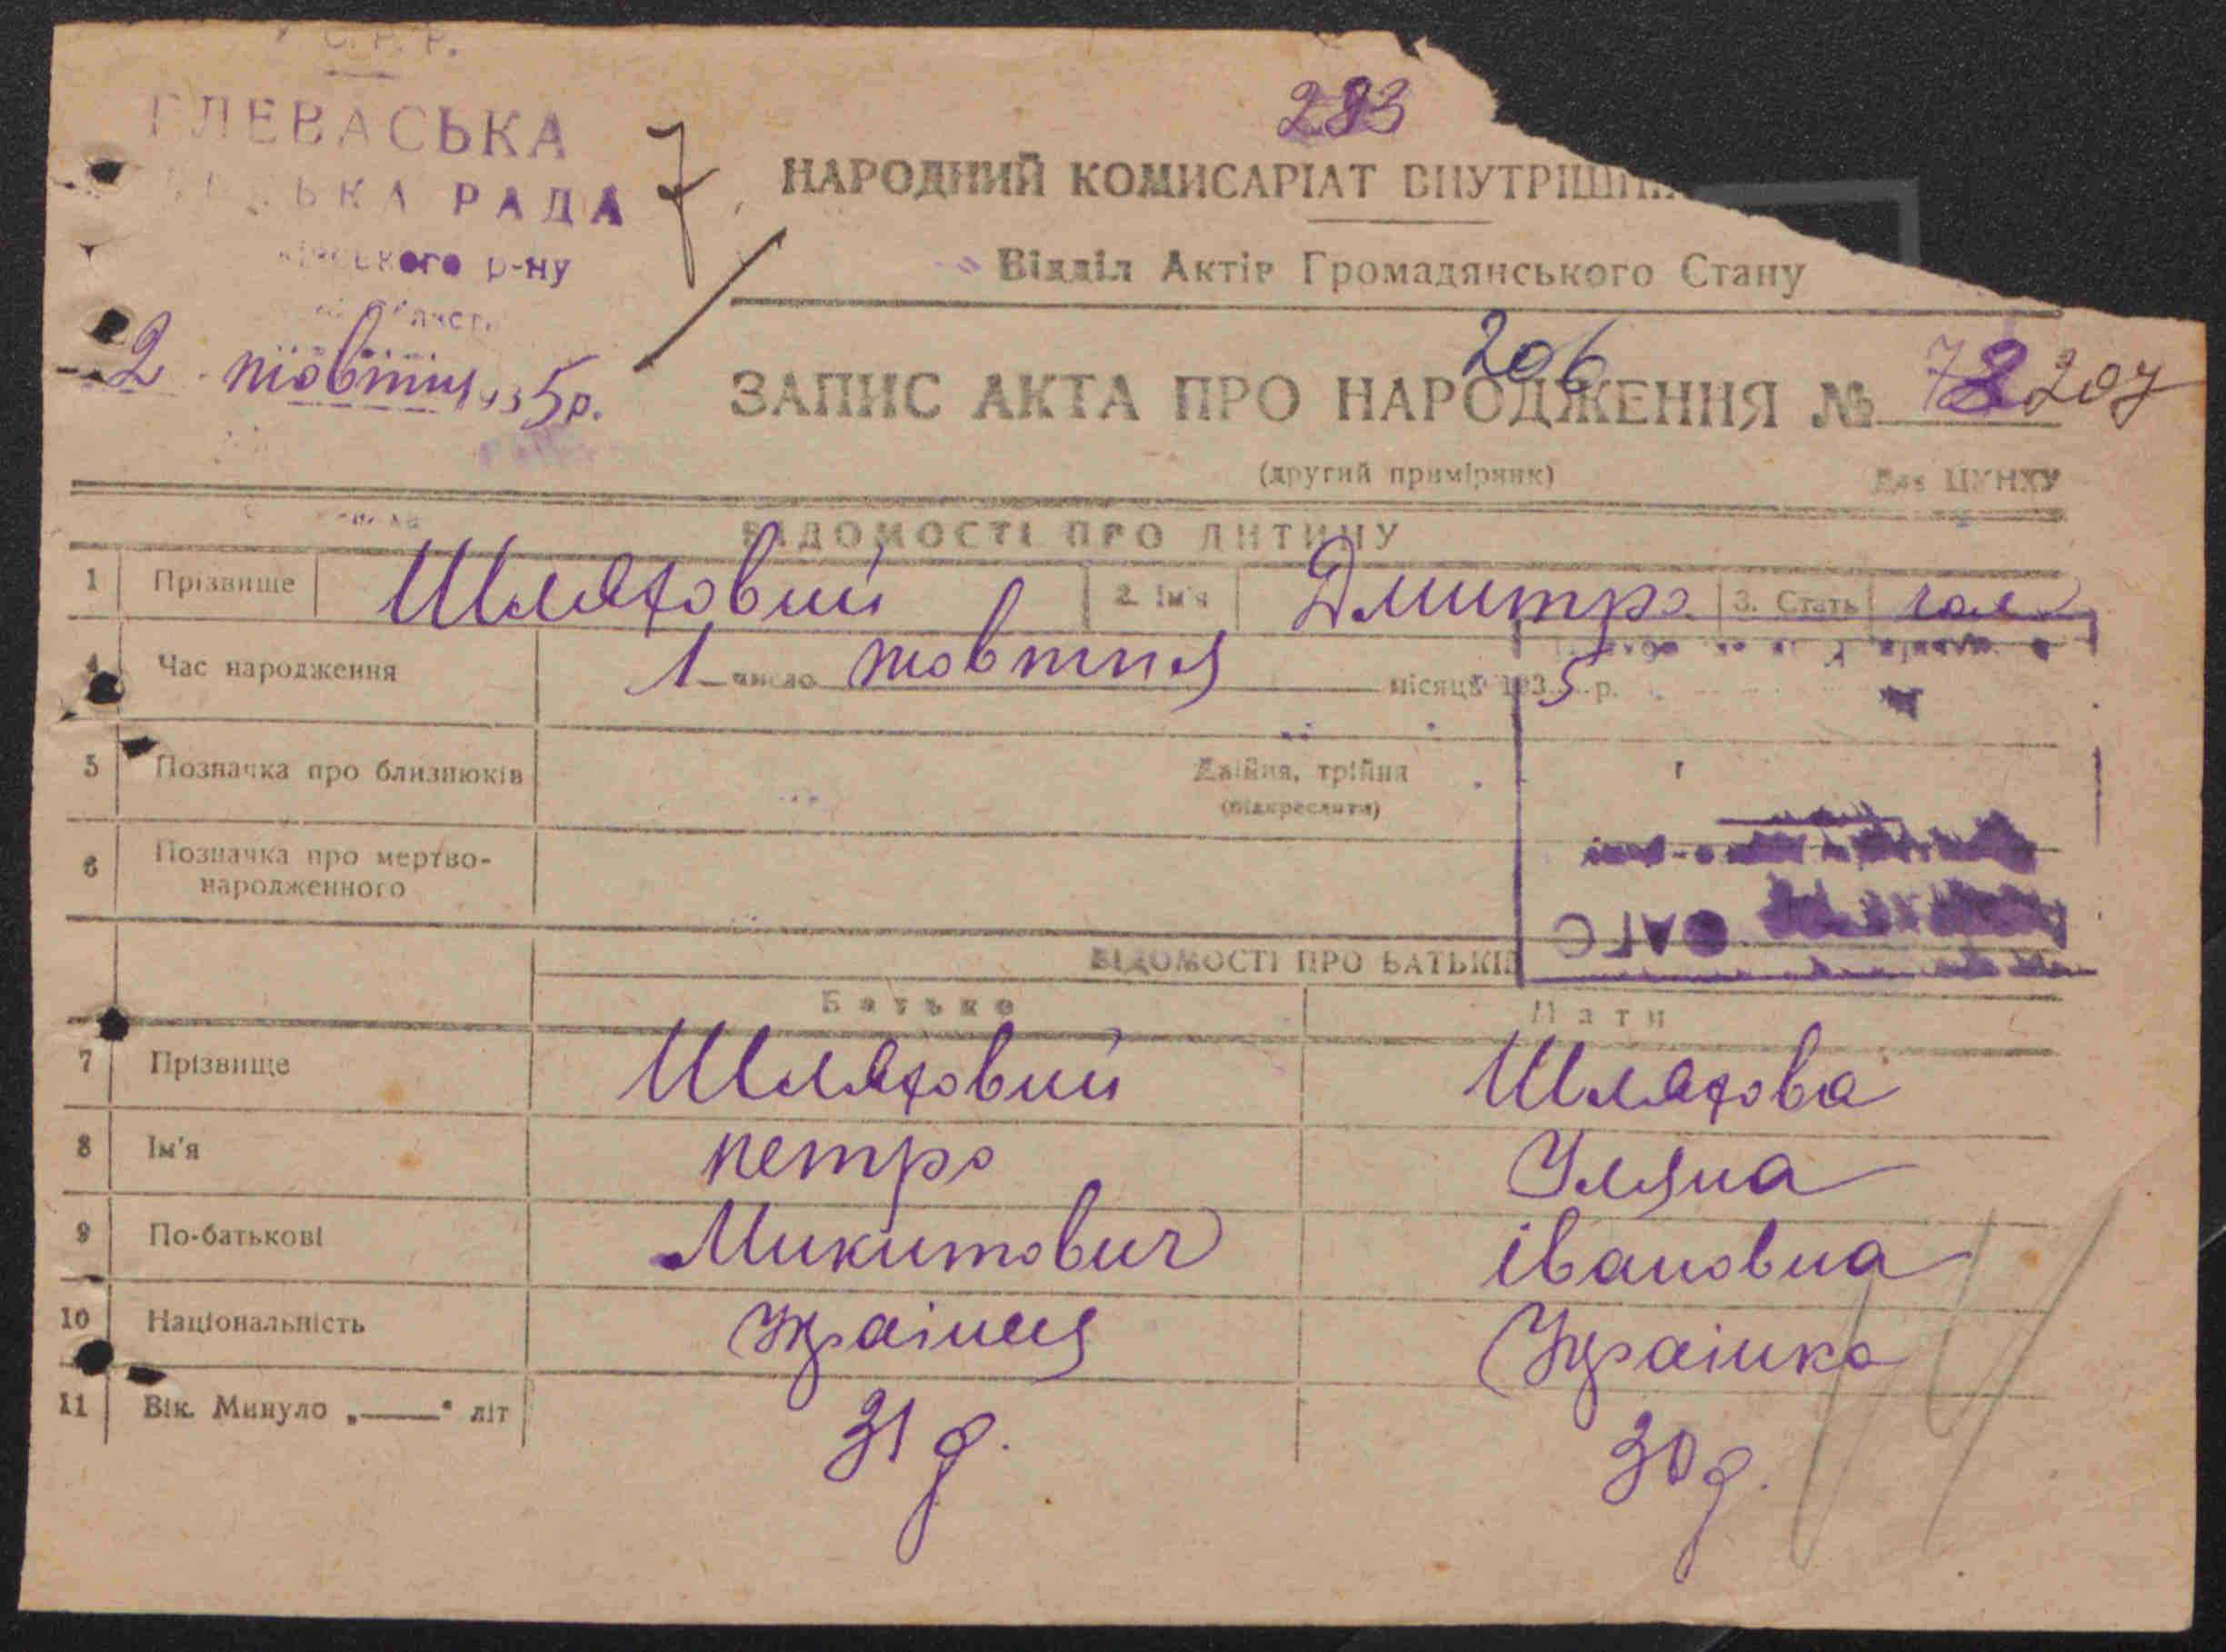 У С. Р. Р.
ГЛЕВАСЬКА
РАДА
р-ну
2 жовтня 1935 р.
7
283
НАРОДНИЙ КОМИСАРІАТ ВНУТРІШН
Відділ Актів Громадянського Стану
206
ЗАПИС АКТА ПРО НАРОДЖЕННЯ № 72 207
(другий примірник) Для ЦУНХУ
ВІДОМОСТІ ПРО ДИТИНУ
1 Прізвище Шляховий 2. Ім'я Дмитро 3. Стать чол
4 Час народження 1 число жовтня місяця 1935 р.
5 Позначка про близнюків Двійня, трійня
(підкреслити)
6 Позначка про мертво-
народженного
ОАГС
ВІДОМОСТІ ПРО БАТЬКІВ
Батько Мати
7 Прізвище Шляховий Шляхова
8 Ім'я петро Уляна
9 По-батькові Микитович івановна
10 Національність Українець Українка
11 Вік. Минуло „——" літ 31 р. 30 р.